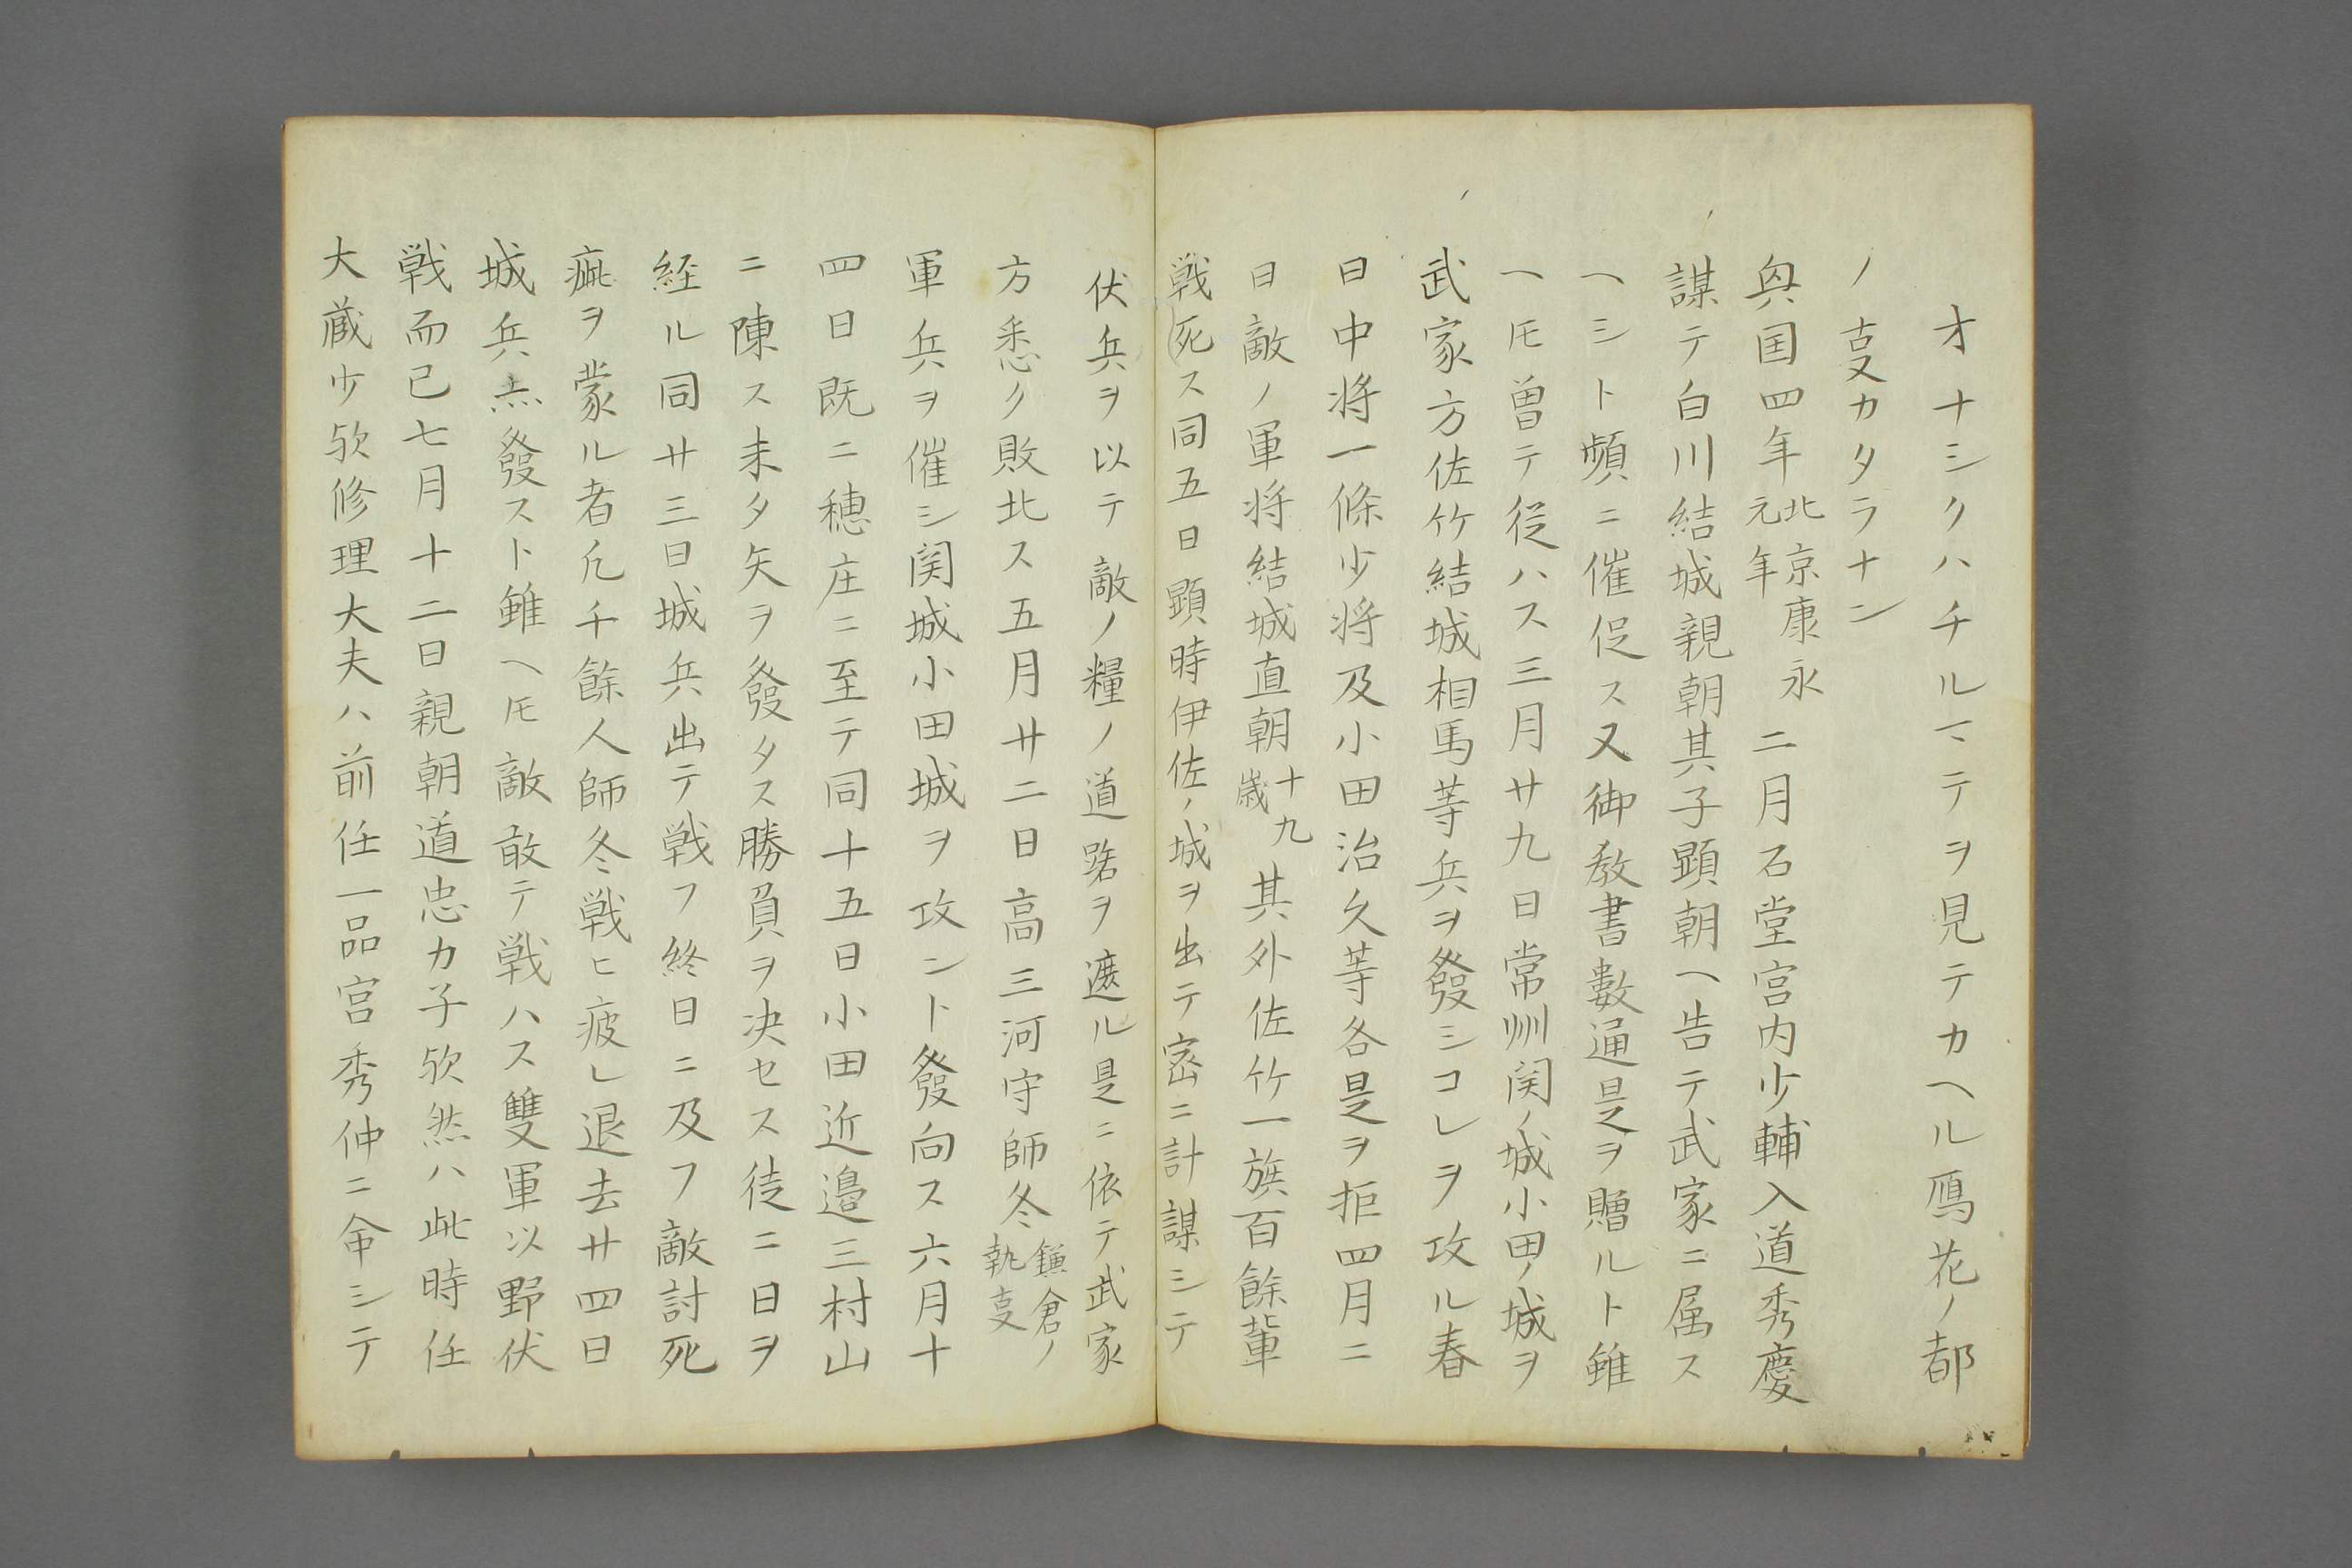 オナシクハチルマテヲ見テカヘル鴈花ノ都
ノ叓カタラナン
興国四年北京康永元年二月石堂宮内少輔入道秀慶
謀テ白川結城親朝其子顕朝ヘ告テ武家ニ属ス
ヘシト頻ニ催促ス又御教書數通是ヲ贈ルト雖
ヘ𪜈曽テ従ハス三月廿九日常州関ノ城小田ノ城ヲ
武家方佐竹結城相馬等兵ヲ發シコレヲ攻ル春
日中将一條少将及小田治久等各是ヲ拒四月二
日敵ノ軍将結城直朝十九歳其外佐竹一族百餘輩
戦死ス同五日顕時伊佐ノ城ヲ出テ密ニ計謀シテ
伏兵ヲ以テ敵ノ糧ノ道路ヲ遮ル是ニ依テ武家
方悉ク敗北ス五月廿二日高三河守師冬鎌倉ノ執叓
軍兵ヲ催シ関城小田城ヲ攻ント發向ス六月十
四日既ニ穂庄ニ至テ同十五日小田近邉三村山
ニ陳ス未タ矢ヲ發タス勝負ヲ决セス徒ニ日ヲ
経ル同廿三日城兵出テ戦フ終日ニ及フ敵討死
疵ヲ蒙ル者凡千餘人師冬戦ヒ疲レ退去廿四日
城兵亦發スト雖ヘ𪜈敵敢テ戦ハス雙軍以野伏
戦而已七月十二日親朝道忠カ子欤然ハ此時任
大蔵少欤修理大夫ハ前任一品宮秀仲ニ命シテ